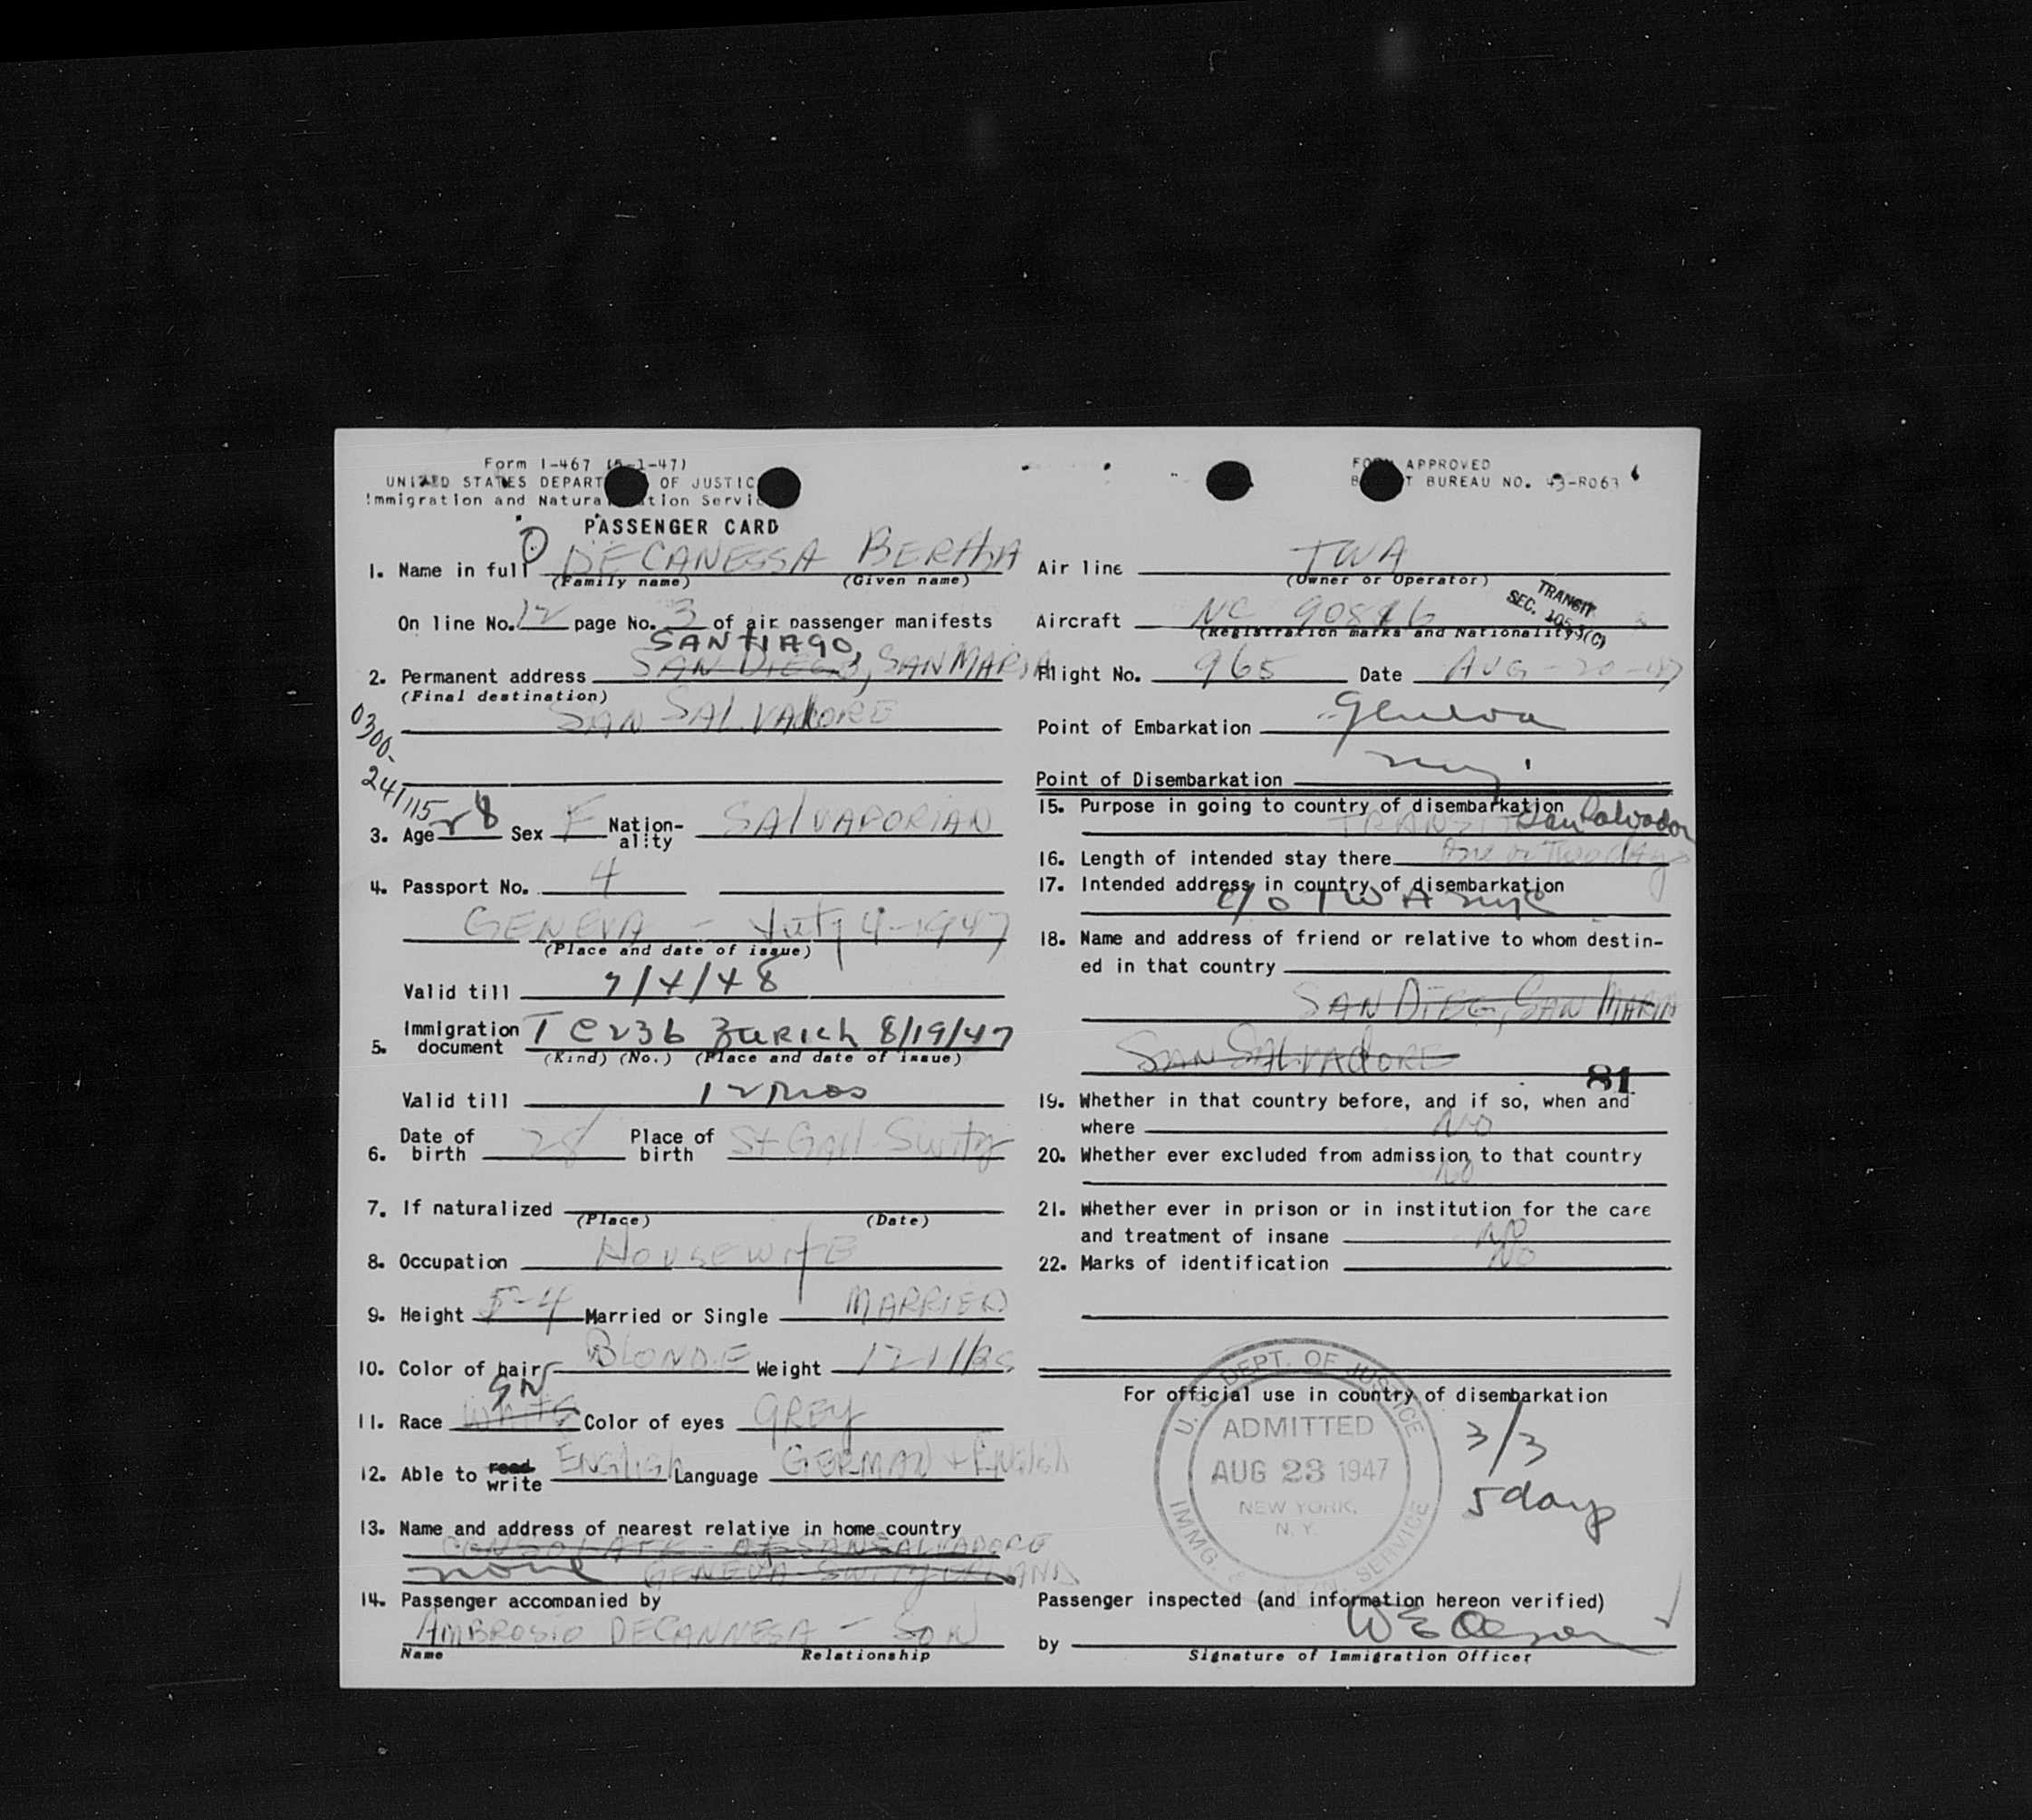 Form I-467 (5-1-47)
UNITED STATES DEPART OF JUSTIC
Immigration and Natura tion Servi
PASSENGER CARD
FORM APPROVED
B T BUREAU NO. 43-R063
1. Name in full DECANESSA BERTHA
(Family name) (Given name)
On line No. 12 page No. 3 of air passenger manifests
SANTIAGO,
2. Permanent address SAN DIEGO, SAN MARIA
(Final destination)
SAN SALVADORE
0300-
24/115
3. Age 28 Sex F Nation-ality SALVADORIAN
4. Passport No. 4
GENEVA - July 4-1947
(Place and date of issue)
Valid till 7/4/48
5. Immigration document T C236 Zurich 8/19/47
(Kind) (No.) (Place and date of issue)
Valid till 12 mos
6. Date of birth 28 Place of birth St Gall Switz
7. If naturalized
(Place) (Date)
8. Occupation HOUSEWIFE
9. Height 5-4 Married or Single MARRIED
10. Color of hair BLONDE Weight 121 lbs
11. Race White Color of eyes GREY
12. Able to read write English Language GERMAN + English
13. Name and address of nearest relative in home country
CONSOLATE - OF SAN SALVADORE
none GENEVA SWITZERLAND
14. Passenger accompanied by
AMBROSIO DECANNESA - SON
Name Relationship
Air line TWA
(Owner or Operator)
TRANSIT
SEC. 105.3(C)
Aircraft NC 90816
(Registration marks and Nationality)
Flight No. 965 Date AUG-20-47
Point of Embarkation Geneva
Point of Disembarkation
15. Purpose in going to country of disembarkation
TRANSIT San Salvador
16. Length of intended stay there One or Two days
17. Intended address in country of disembarkation
c/o TWA NYC
18. Name and address of friend or relative to whom destin-
ed in that country
SAN DIEG, SAN MARIA
SAN SALVADORE
81
19. Whether in that country before, and if so, when and
where No
20. Whether ever excluded from admission to that country
No
21. Whether ever in prison or in institution for the care
and treatment of insane No
22. Marks of identification No
For official use in country of disembarkation
U. S. DEPT. OF JUSTICE
ADMITTED
AUG 23 1947
NEW YORK,
N. Y.
IMMG. & SERVICE
3/3
5 days
Passenger inspected (and information hereon verified)
by W E Olson
Signature of Immigration Officer